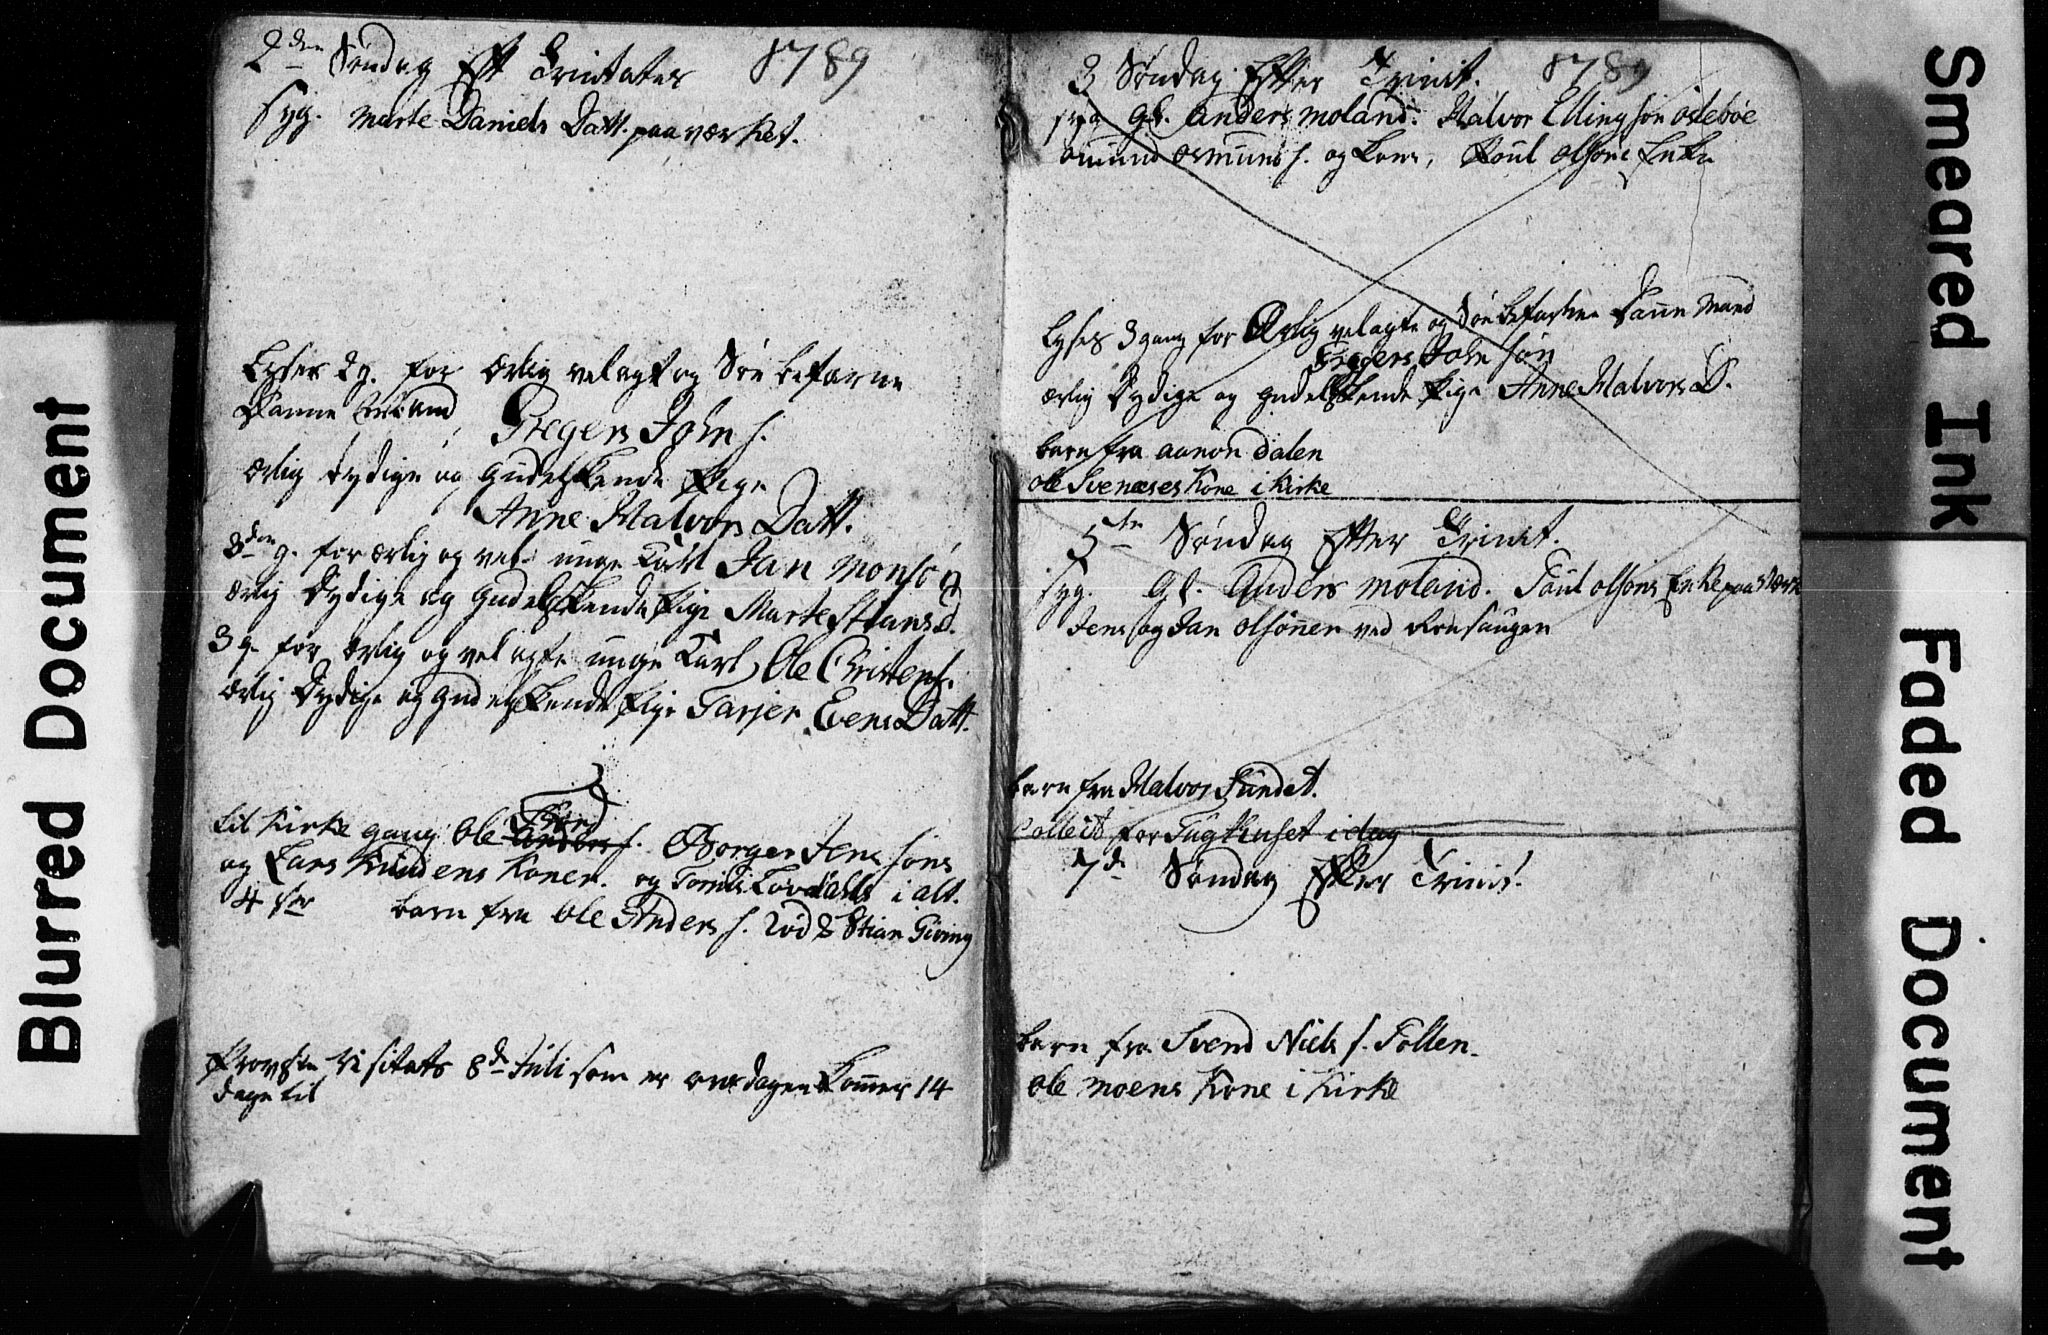 2den Søndag Eft Trinitates 1789
syg. Marte Daniels Datt. paa værket.
Lyses 2 g. for ærlig velagt og Søe befarne
Danne Mand, Gregers John s.
ærlig dydige og Gudelskende Pige
Anne Halvors Datt.
3den g. for ærlig og vel- unge Karl Jan Monsøn
ærlig Dydige og Gudelskende Pige Marte Stians d.
3 g. for ærlig og velagte unge Karl Ole Christens.
ærlig Dydige og Gudelskende Pige Tarjer Evens Datt.
til Kirke gang Ole Anders s. Børger Jens søns
og Lars Knudens Koner. og i alt.
4 barn fra Ole Anders s. Stian Giving
Provste Visitats 8de Juli som er onsdagen kommer 14
dage til
3 Søndag Efter Trinit. 1789
syg Gl. Anders Moland. Halvor Ellingsøn Østebøe
Omund Osmund s. og kone, Poul Olsøns Enke
Lyses 3 gang for Ærlig velagte og Søe befarne Danne Mand
Gregers John søn
ærlig Dydige og Gudelskende Pige Anne Halvors D.
barn fra Aanon Dalen
Ole Svenæses Kone i Kirke
5te Søndag Efter Trinit.
syg. Gl. Anders Moland. Poul Olsøns Enke paa Værk
Jens og Jan Olsønner ved
barn fra Halvor Sundet.
Collect for Tugthuset i dag
7de Søndag Efter Trinit.
barn fra Svend Niels s. Tollen
Ole Moens Kone i Kirke
Smeared Ink
Faded Document
Blurred Document